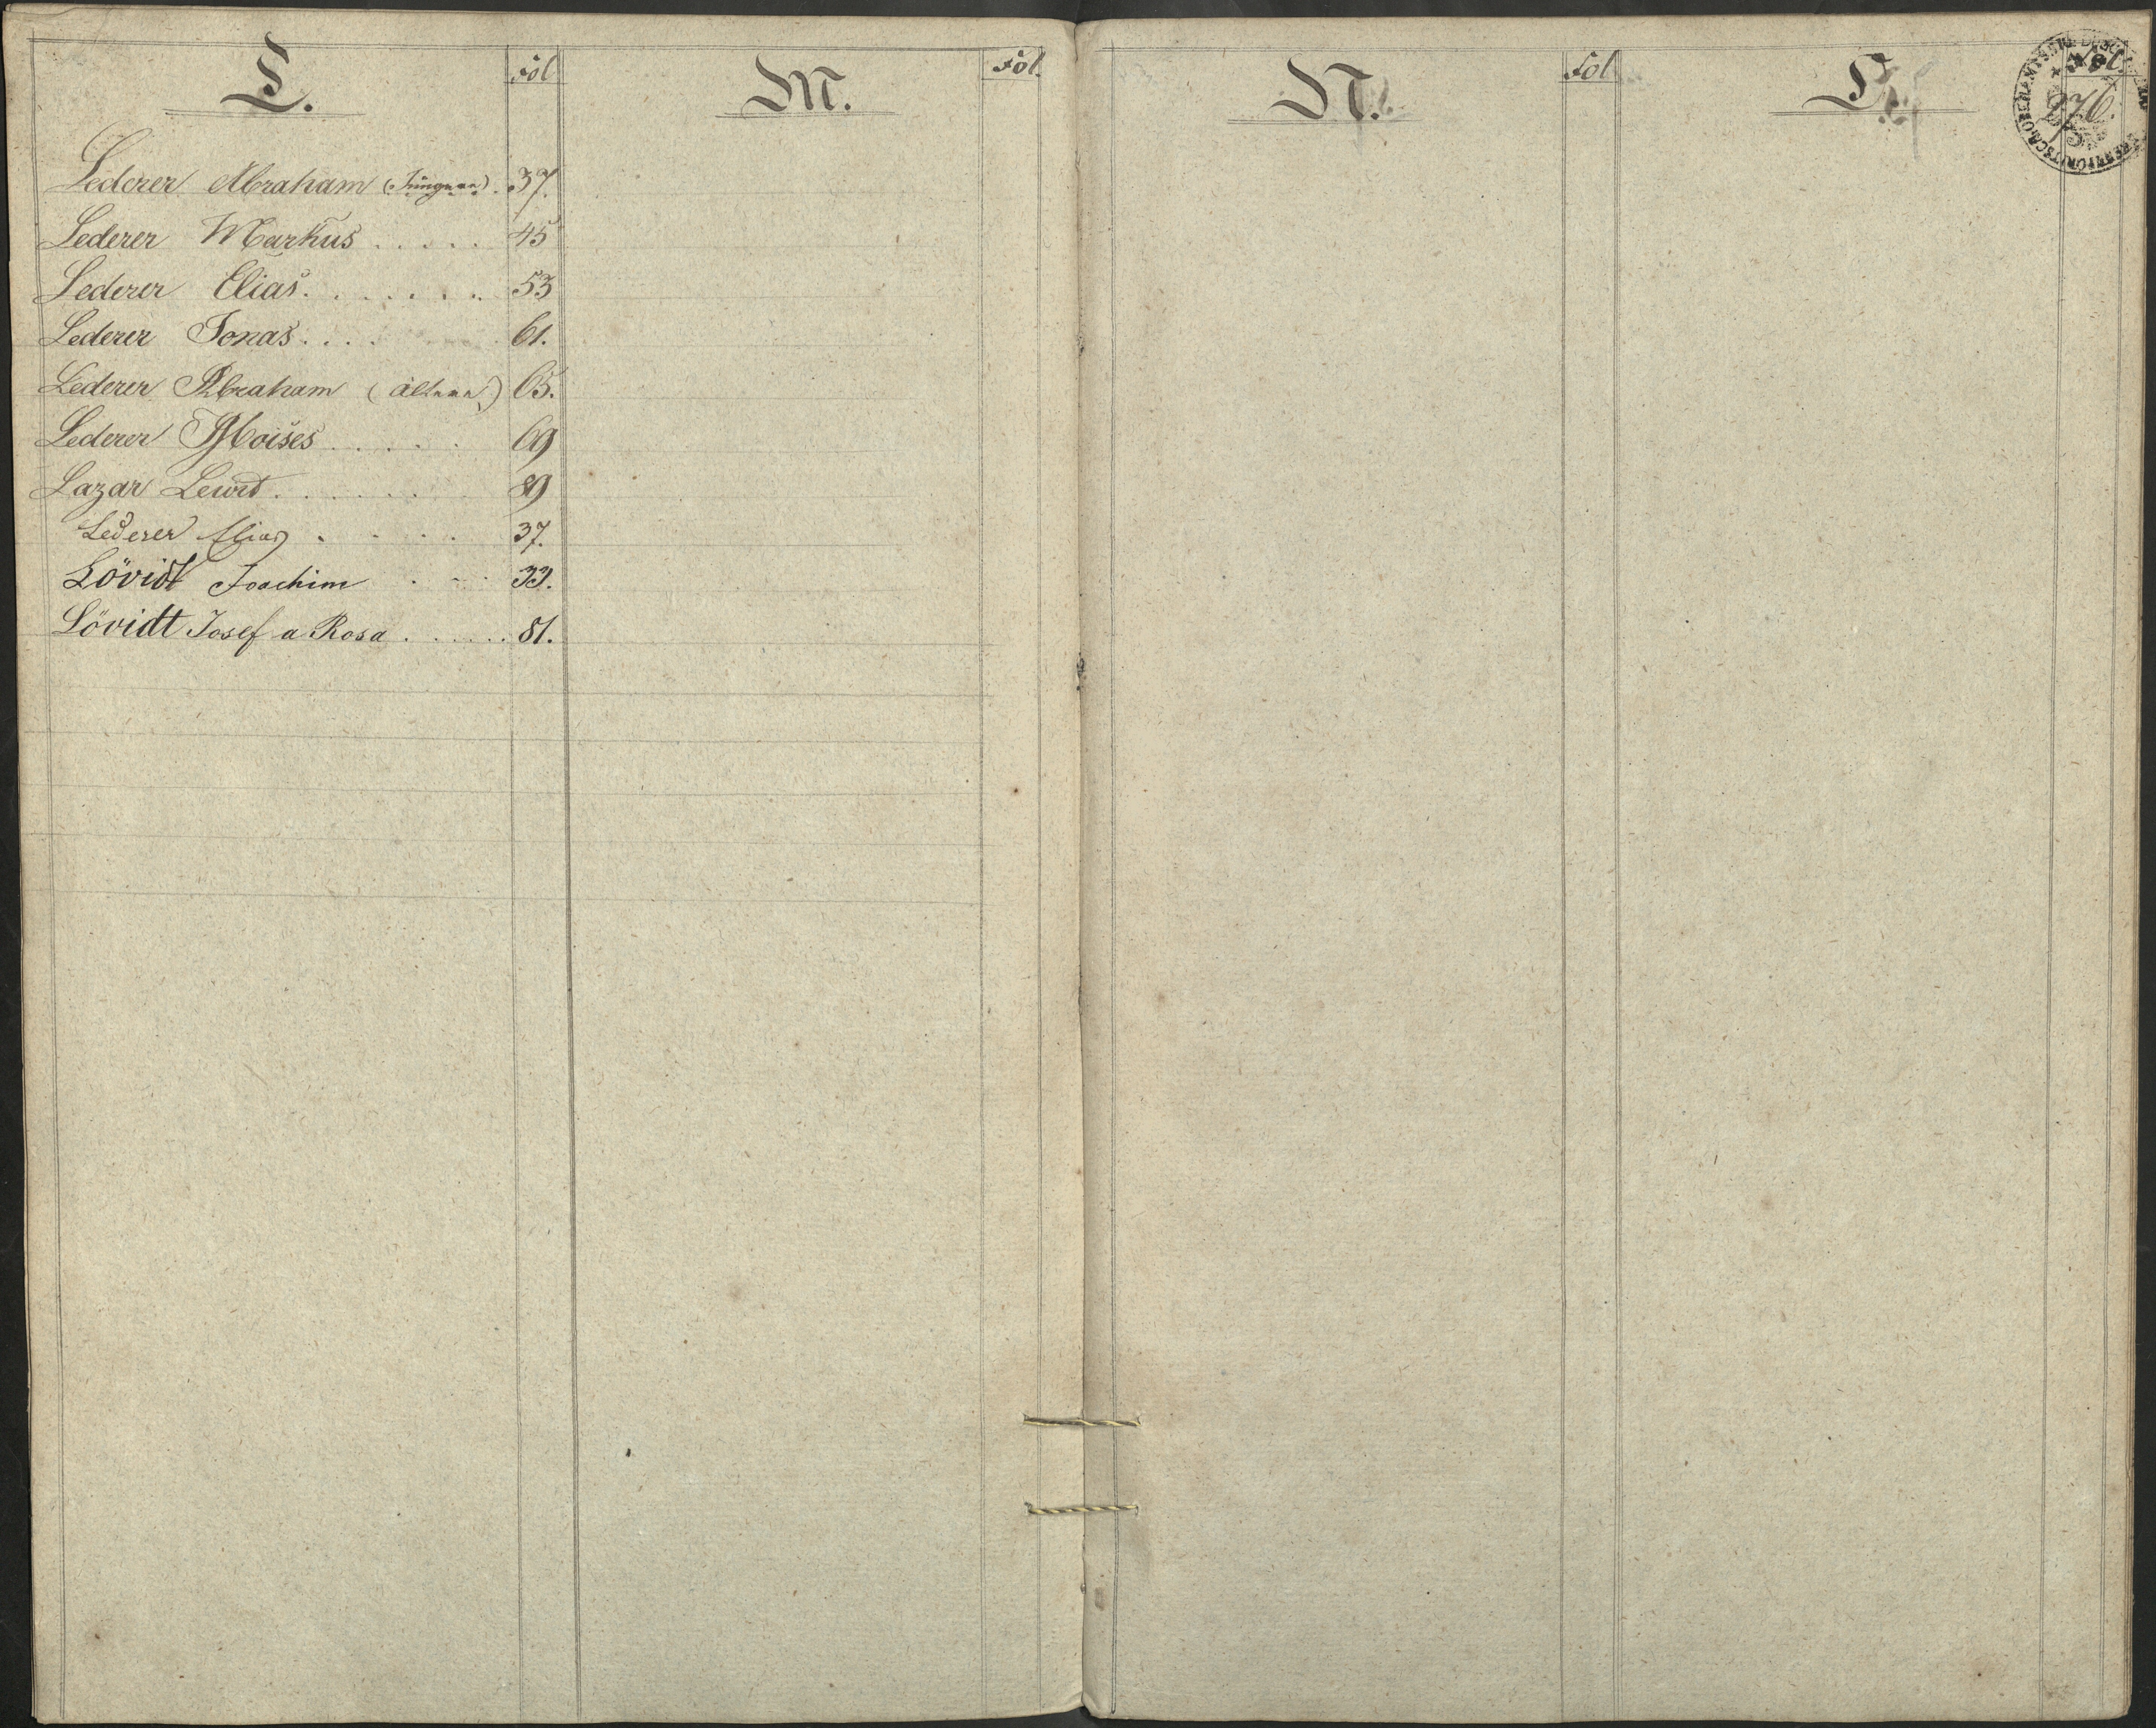 L.
Fol.
Lederer Abraham (Jünger) . 37.
Lederer Markus . . . . . 45
Lederer Elias . . . . . . . 53
Lederer Jonas . . . . 61.
Lederer Abraham (älterer) 65.
Lederer Moises . . . . . 69
Lazar . . . . . . . 89
Lederer Elias . . . . . 37.
Lövidt Joachim . - . 33.
Lövidt Josef a Rosa . . . . . . 81.
M.
Fol.
N.
Fol.
P.
Fol.
276.